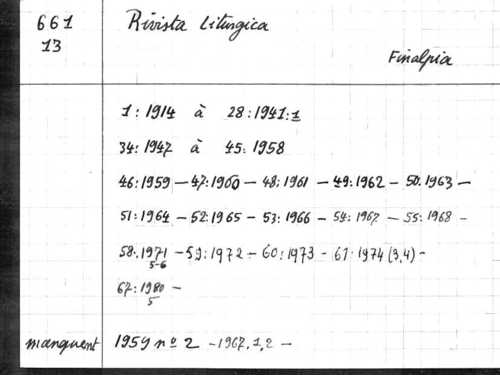 661 Rivista Liturgica
13
Finalpia
1:1914 à 28:1941:1
34:1947 à 45:1958
46:1959 — 47:1960 — 48:1961 — 49:1962 — 50.1963 —
51:1964 — 52:1965 — 53:1966 — 54:1967 — 55:1968 —
58.1971 — 59:1972 — 60:1973 - 61:1974 (3,4) -
5-6
67:1980 —
5
manquent 1959 nº 2 - 1967.1,2 —